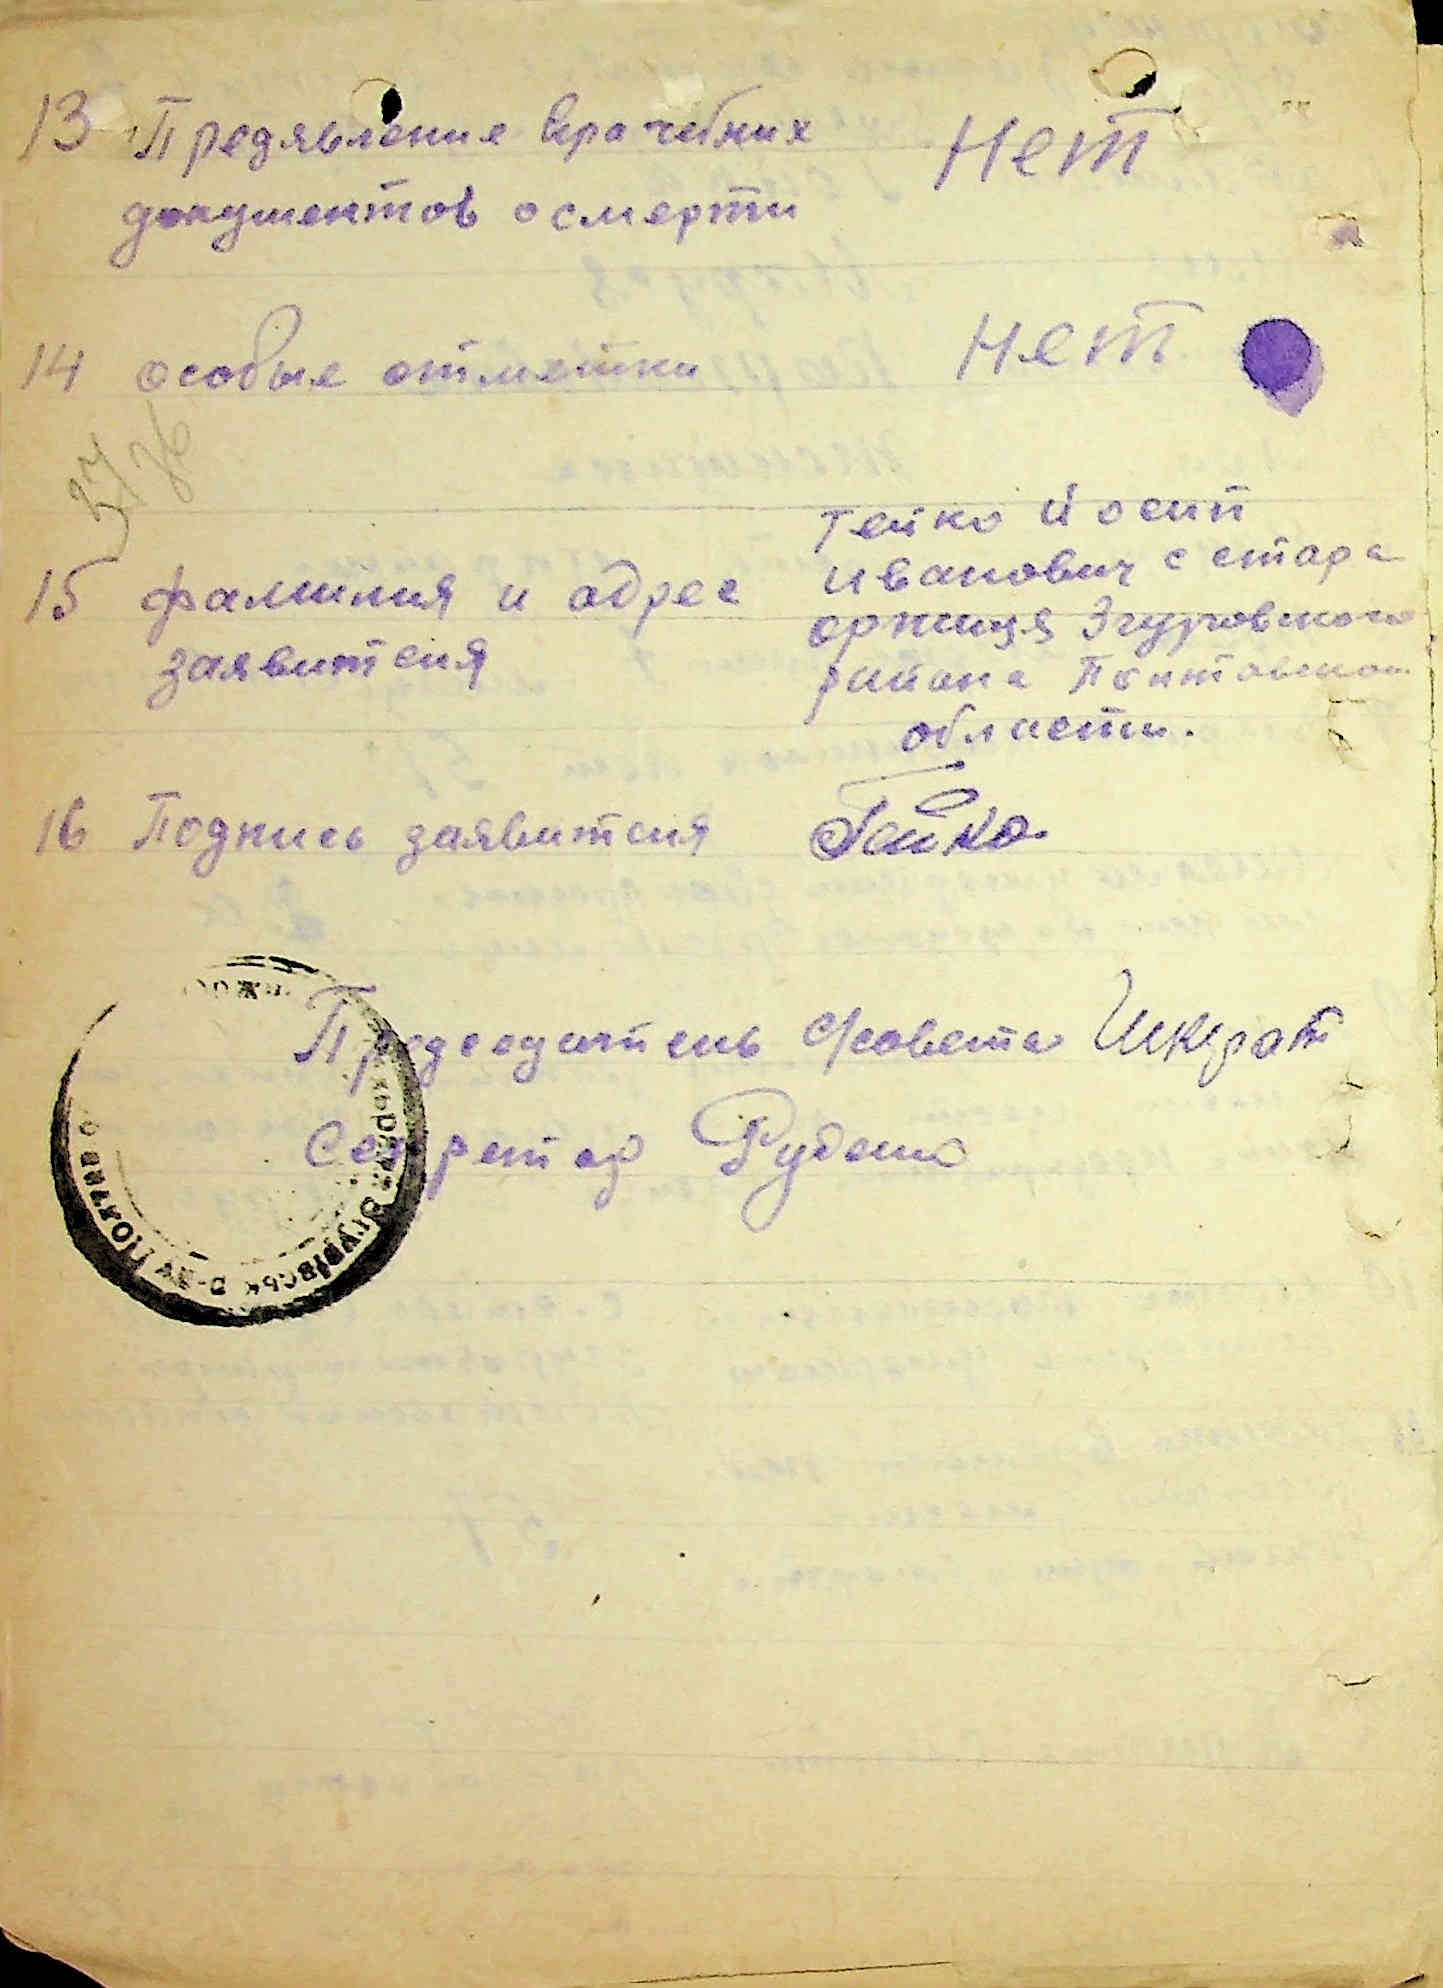 13 Предявление врачебних Нет
документов о смерти
14 особые отметки Нет
37/36
15 фамилия и адрес
заявителя
Гейко Йосип
Иванович с стара
оржиця Згуровского
района Полтавской
области.
16 Подпись заявителя Гейко
Председатель с/совета
Секретар